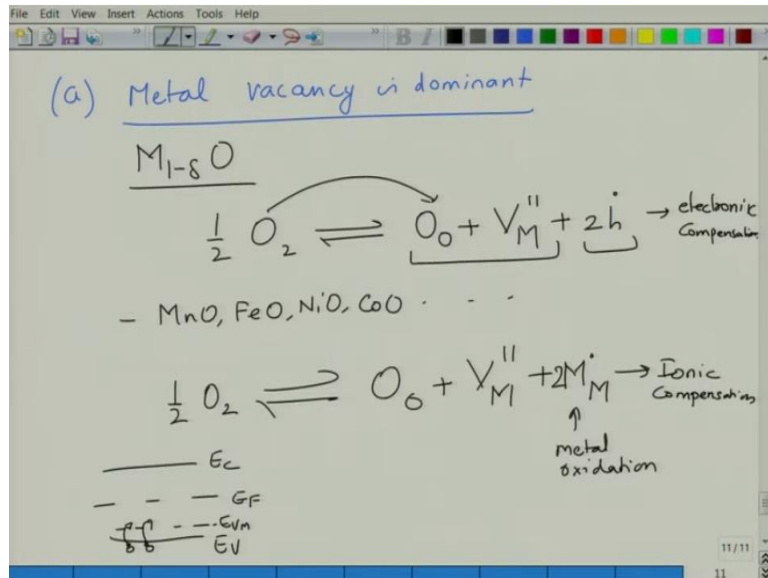 File Edit View Insert Actions Tools Help
(a) Metal vacancy is dominant
M₁₋δ O
½ O₂ ⇌ Oₒ + V_M'' + 2h˙ → electronic
Compensation
- MnO, FeO, NiO, CoO . . .
½ O₂ ⇌ Oₒ + V_M'' + 2M_M˙ → Ionic
Compensation
↑
metal
oxidation
Ec
EF
EVM
EV
11/11
11